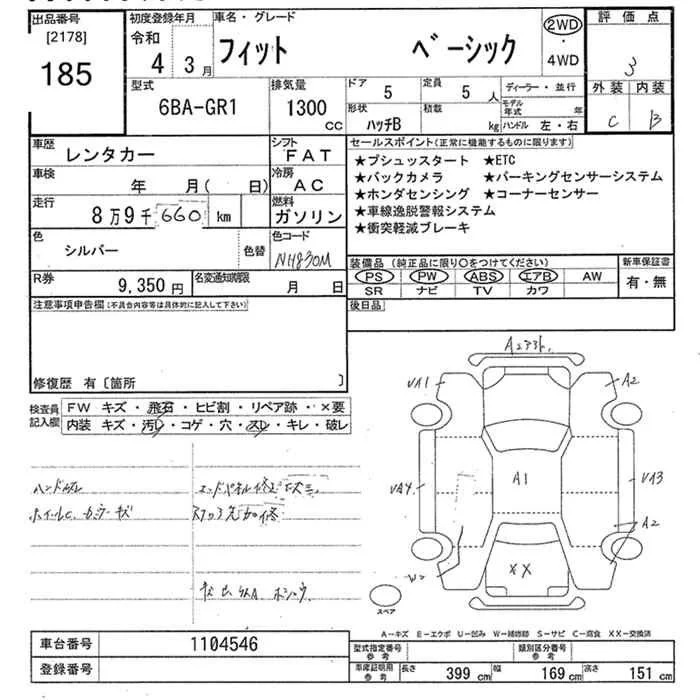 出品番号
[2178]
185
初度登録年月
令和
4年3月
車名・グレード
フィット ベーシック
2WD
・
4WD
評価点
3
外装 内装
C B
型式
6BA-GR1
排気量
1300
CC
ドア
5
定員
5人
形状
ハッチB
積載
kg
ディーラー・並行
モデル年式 年
ハンドル 左・右
車歴
レンタカー
シフト
FAT
車検
年 月( 日)
冷房
AC
走行
8万9千660km
燃料
ガソリン
色
シルバー
色替
色コード
NH830M
R券
9,350円
名変通知期限
月 日
セールスポイント(正常に機能するものに限ります)
★プシュッスタート ★ETC
★バックカメラ ★パーキングセンサーシステム
★ホンダセンシング ★コーナーセンサー
★車線逸脱警報システム
★衝突軽減ブレーキ
装備品(純正品に限り〇をつけてください)
PS PW ABS エアB AW
SR ナビ TV カワ
新車保証書
有・無
後日品
注意事項申告欄(不具合内容等は具体的に記入して下さい)
修復歴 有〔箇所 〕
検査員記入欄
FW キズ・飛石・ヒビ割・リペア跡・×要
内装 キズ・汚レ・コゲ・穴・スレ・キレ・破レ
A2
UA1
A2
UA4
A1
UA3
A2
XX
スペア
A-キズ E-エクボ U-凹み W-補修跡 S-サビ C-腐食 XX-交換済
車台番号
1104546
登録番号
型式指定番号
参考
類別区分番号
参考
車庫証明用
参考
長さ 399 cm 幅 169 cm 高さ 151 cm